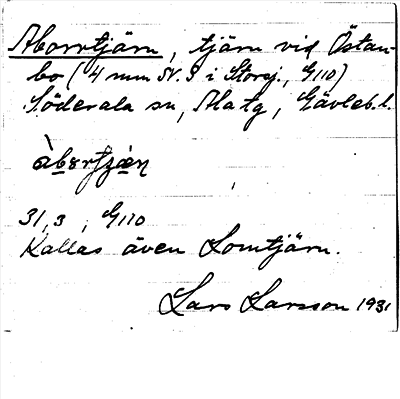 Aborrtjärn, tjärn vid Östan-
bo (4 mm SV. S i Storsj., G110)
Söderala sn, Ala tg, Gävleb. l.
àbo̱rtjä̱ṇ
31, 3, G110
Kallas även Lomtjärn.
Lars Larsson 1931